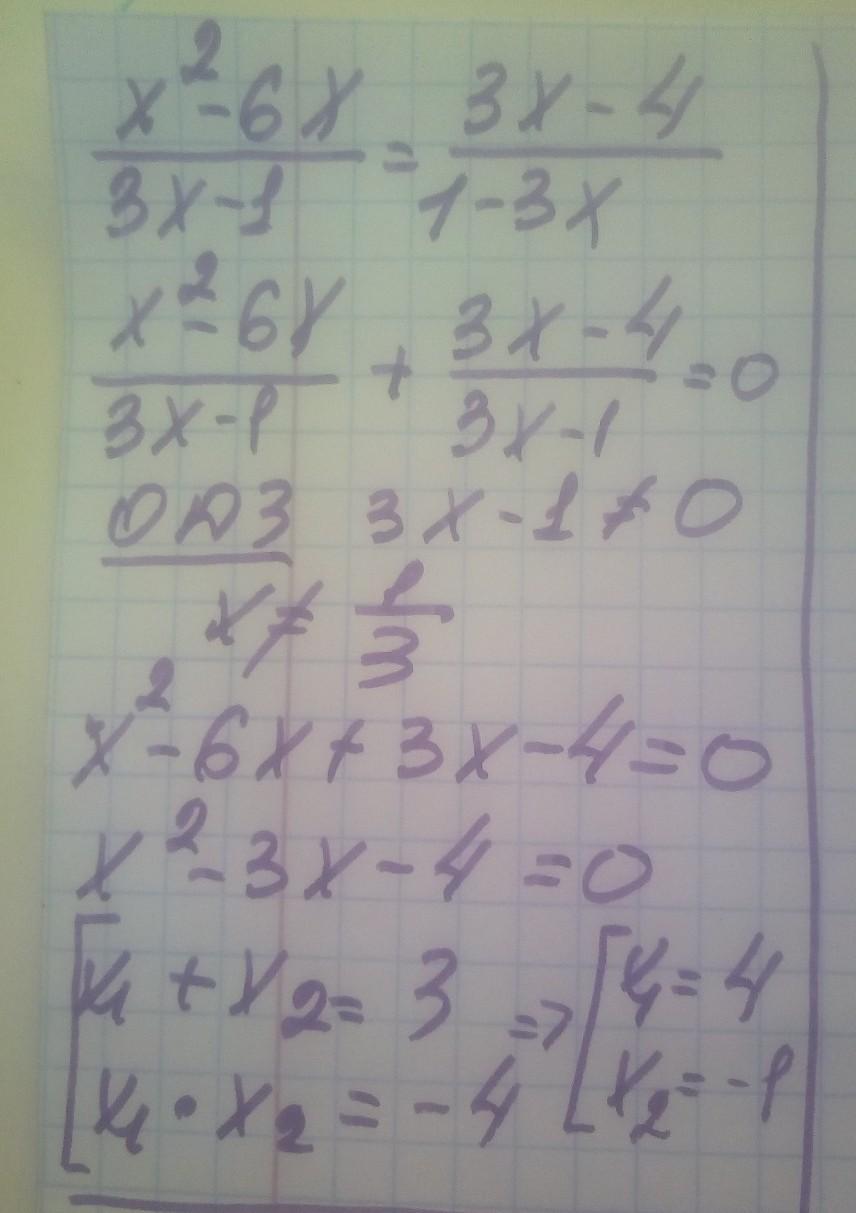 x² - 6x / 3x - 1 = 3x - 4 / 1 - 3x
x² - 6x / 3x - 1 + 3x - 4 / 3x - 1 = 0
ОДЗ 3x - 1 ≠ 0
x ≠ 1/3
x² - 6x + 3x - 4 = 0
x² - 3x - 4 = 0
[ x₁ + x₂ = 3 => [ x₁ = 4
x₁ · x₂ = -4 x₂ = -1